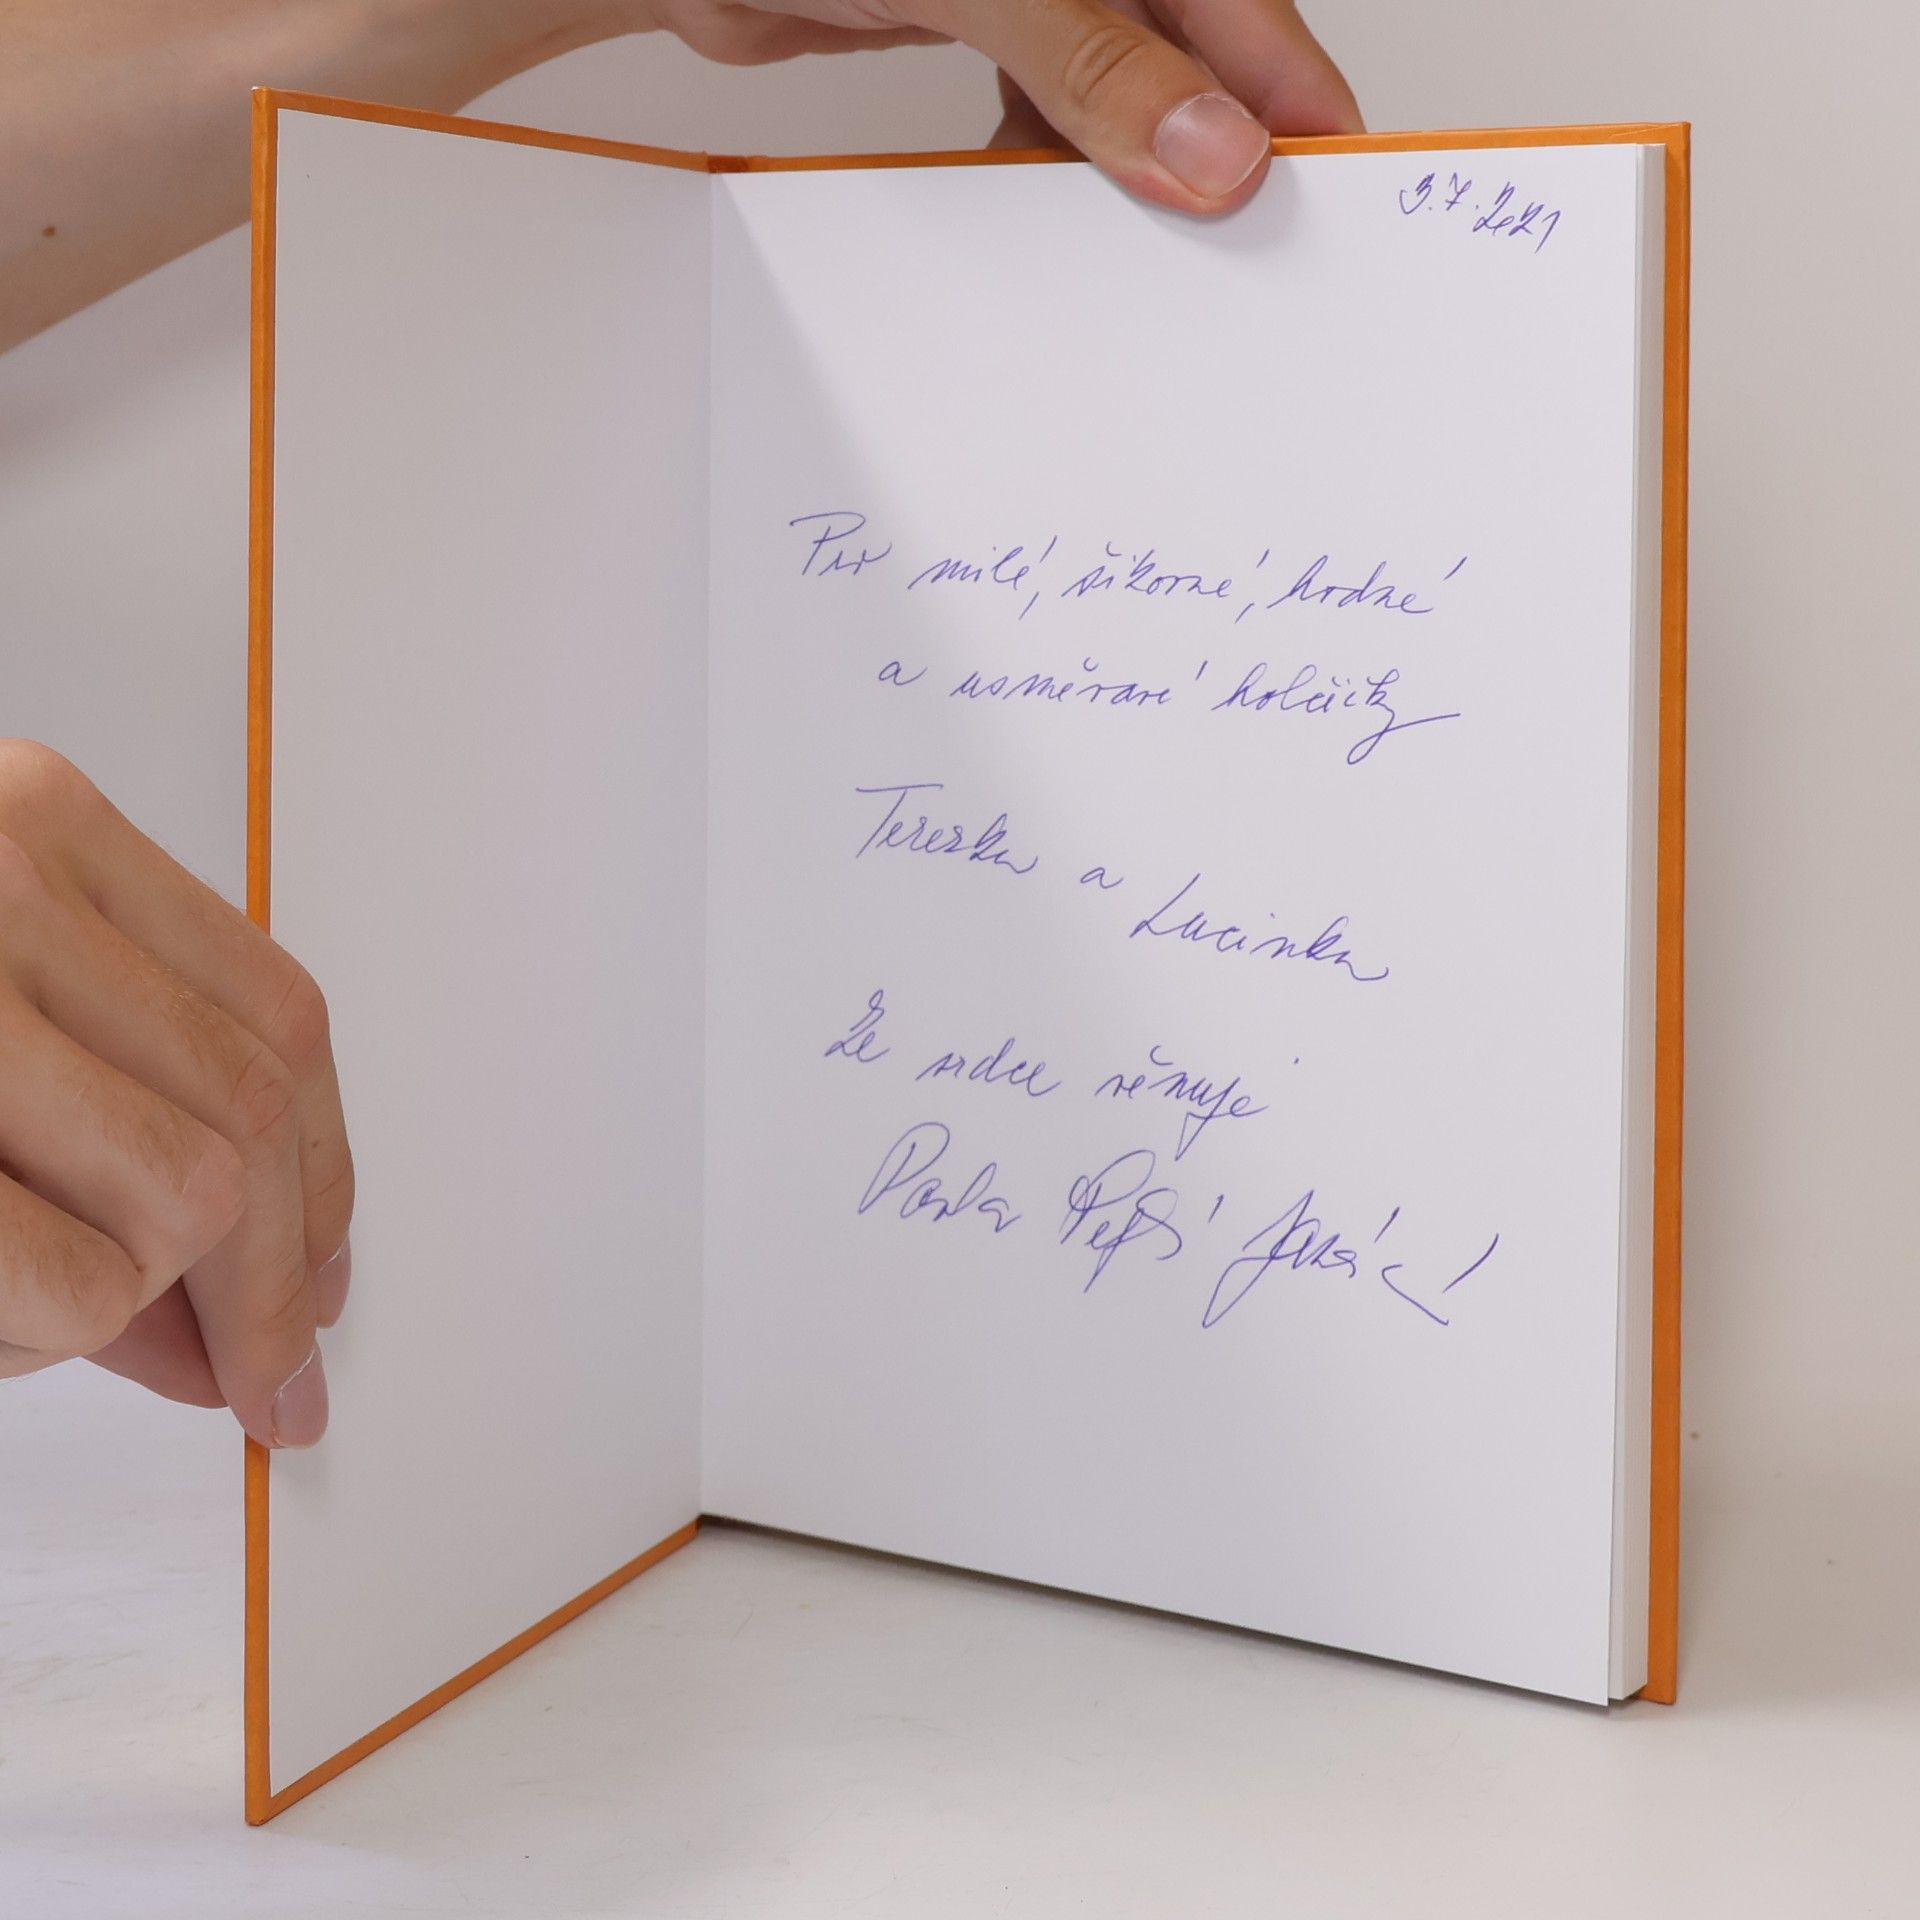 3.7.2021
Pro milé, šikovné, hodné
a usměvavé holčičky
Terezku a Lucinku
Ze srdce věnuje
Pavla